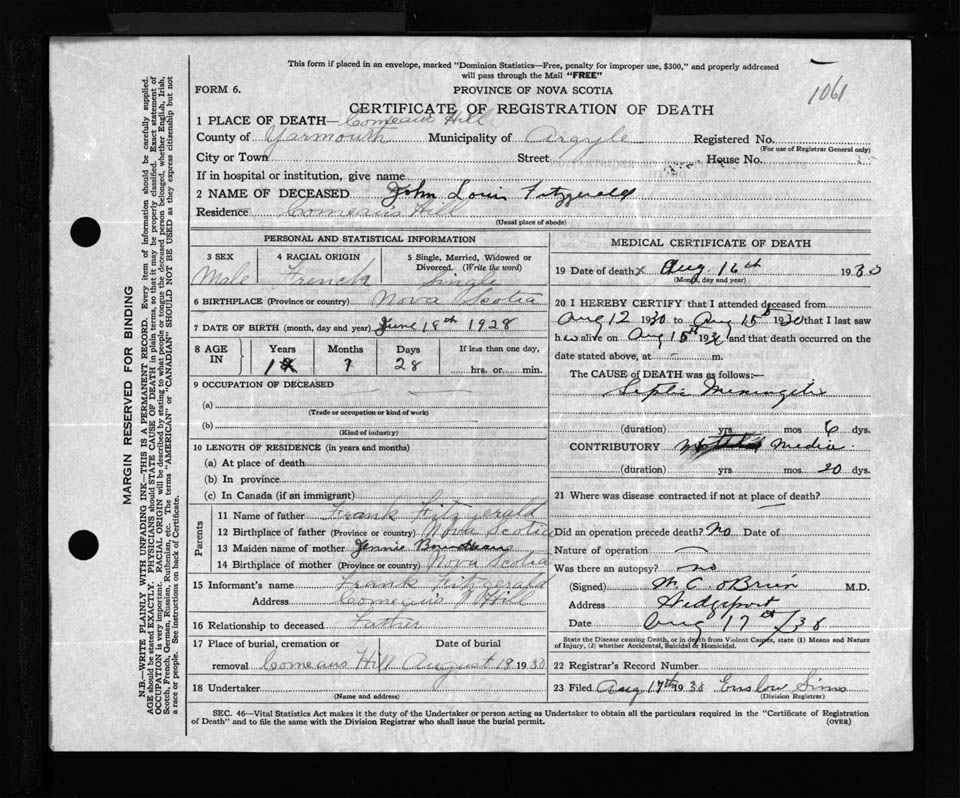 This form if placed in an envelope, marked "Dominion Statistics—Free, penalty for improper use, $300," and properly addressed
will pass through the Mail "FREE"
1061
FORM 6. PROVINCE OF NOVA SCOTIA
CERTIFICATE OF REGISTRATION OF DEATH
1 PLACE OF DEATH— Comeaus Hill
County of Yarmouth Municipality of Argyle Registered No.
(For use of Registrar General only)
City or Town Street House No.
If in hospital or institution, give name
2 NAME OF DECEASED John Louis Fitzgerald
Residence Comeaus Hill
(Usual place of abode)
PERSONAL AND STATISTICAL INFORMATION
3 SEX 4 RACIAL ORIGIN 5 Single, Married, Widowed or
Divorced. (Write the word)
Male French Single
6 BIRTHPLACE (Province or country) Nova Scotia
7 DATE OF BIRTH (month, day and year) June 18th 1928
8 AGE IN Years Months Days If less than one, day,
1 28 hrs. or min.
9 OCCUPATION OF DECEASED
(a)
(Trade or occupation or kind of work)
(b)
(Kind of industry)
10 LENGTH OF RESIDENCE (in years and months)
(a) At place of death
(b) In province
(c) In Canada (if an immigrant)
Parents
11 Name of father Frank Fitzgerald
12 Birthplace of father (Province or country) Nova Scotia
13 Maiden name of mother Jennie
14 Birthplace of mother (Province or country) Nova Scotia
15 Informant's name Frank Fitzgerald
Address Comeaus Hill
16 Relationship to deceased Father
17 Place of burial, cremation or Date of burial
removal Comeaus Hill August 18 1930
18 Undertaker
(Name and address)
MEDICAL CERTIFICATE OF DEATH
19 Date of death x Aug. 16th 1930
(Month, day and year)
20 I HEREBY CERTIFY that I attended deceased from
Aug 12 1930 to Aug 15th 1930 that I last saw
h alive on Aug 15th 193 and that death occurred on
date stated above, at - m.
The CAUSE OF DEATH was as follows:—
Septic Meningitis
(duration) yrs. mos 6 dys.
CONTRIBUTORY Media
(duration) yrs. mos. 20 dys.
21 Where was disease contracted if not at place of death?
Did an operation precede death? No Date of
Nature of operation
Was there an autopsy? no
(Signed) W. C. O'Brien M.D.
Address Wedgeport
Date Aug 17th /30
State the Disease causing Death, or in death from Violent Causes, state (1) Means and Nature
of Injury, (2) whether Accidental, Suicidal or Homicidal.
22 Registrar's Record Number
23 Filed Aug 17th 1930 Enslow Sims
(Division Registrar)
SEC. 46—Vital Statistics Act makes it the duty of the Undertaker or person acting as Undertaker to obtain all the particulars required in the "Certificate of Registration
of Death" and to file the same with the Division Registrar who shall issue the burial permit. (OVER)
MARGIN RESERVED FOR BINDING
N.B.—WRITE PLAINLY WITH UNFADING INK—THIS IS A PERMANENT RECORD. Every item of information should be carefully supplied.
AGE should be stated EXACTLY. PHYSICIANS should STATE CAUSE OF DEATH in plain terms, so that it may be properly classified. Exact statement of
OCCUPATION is very important. RACIAL ORIGIN will be described by stating to what people or tongue the deceased person belonged, whether English, Irish,
Scotch, French, German, Russian, Ruthenian, etc. The terms "AMERICAN" or "CANADIAN" SHOULD NOT BE USED as they express citizenship but not
a race or people. See instructions on back of Certificate.